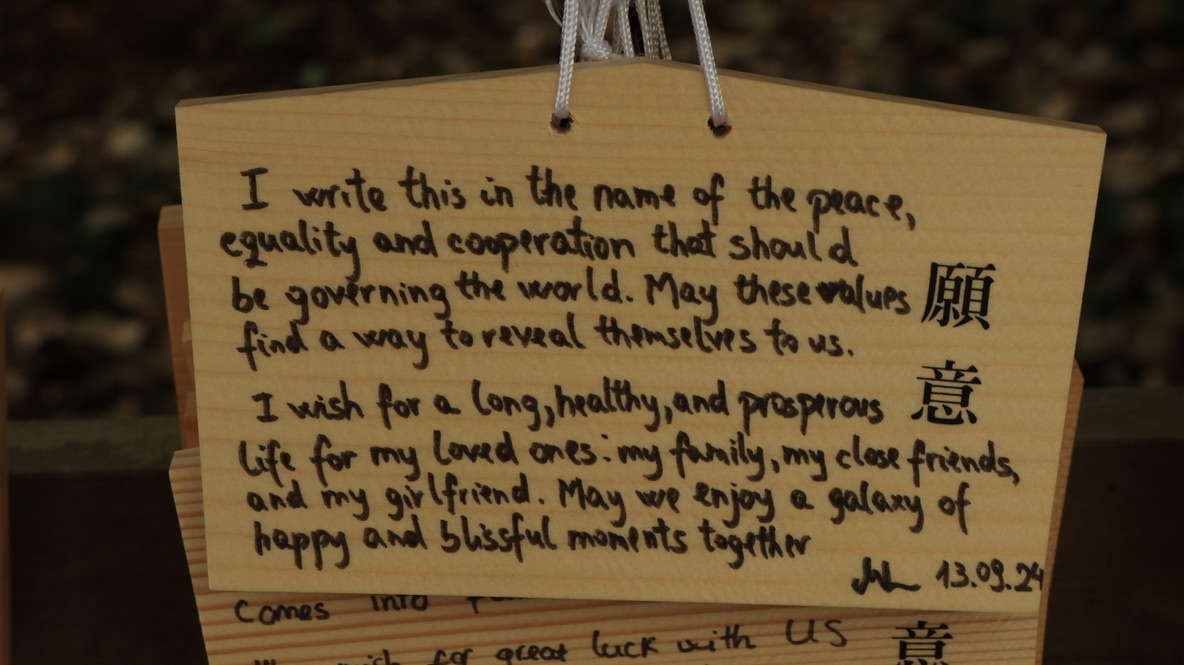 I write this in the name of the peace,
equality and cooperation that should
be governing the world. May these values
find a way to reveal themselves to us.
I wish for a long, healthy, and prosperous
life for my loved ones: my family, my close friends,
and my girlfriend. May we enjoy a galaxy of
happy and blissful moments together
13.09.24
願意
comes into
for great luck with US
意